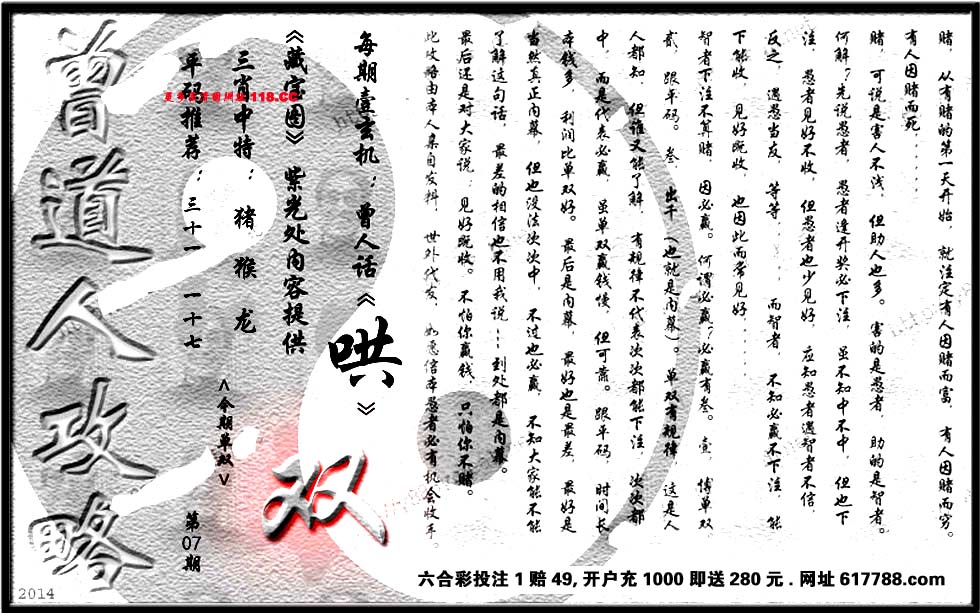 赌，从有赌的第一天开始，就注定有人因赌而富，有人因赌而穷。
有人因赌而死……
赌，可说是害人不浅，但助人也多。害的是愚者，助的是智者。
何解？先说愚者，愚者逢开奖必下注，虽不知中不中，但也下
注，愚者见好不收，但愚者也少见好，应知愚者遇智者不信，
反之，遇愚当友，等等……而智者，不知必赢不下注，能
下能收，见好既收，也因此而常见好……
智者下注不算赌，因必赢。何谓必赢？必赢有叁。壹，博单双
贰，跟平码。叁，出千（也就是内幕）。单双有规律，这是人
人都知，但谁又能了解，有规律不代表次次都能下注，次次都
中，而是代表必赢，虽单双赢钱慢，但可靠。跟平码，时间长
本钱多，利润比单双好。最后是内幕，最好也是最差，最好是
当然真正内幕，但也没法次次中，不过也必赢，不知大家能不能
了解这句话，最差的相信也不用我说……到处都是内幕。
最后还是对大家说：见好既收。不怕你赢钱，只怕你不赌。
此攻略由本人亲自发料，世外代友，如愿信本愚者必有机会收手。
每期壹玄机：曾人话《哄》
《藏宝图》紫光处内容提供
三肖中特：猪 猴 龙
平码推荐：三十一 一十七
118.CC
<今期单双>
双
第07期
曾道人攻略
2014
六合彩投注1赔49,开户充1000即送280元.网址617788.com